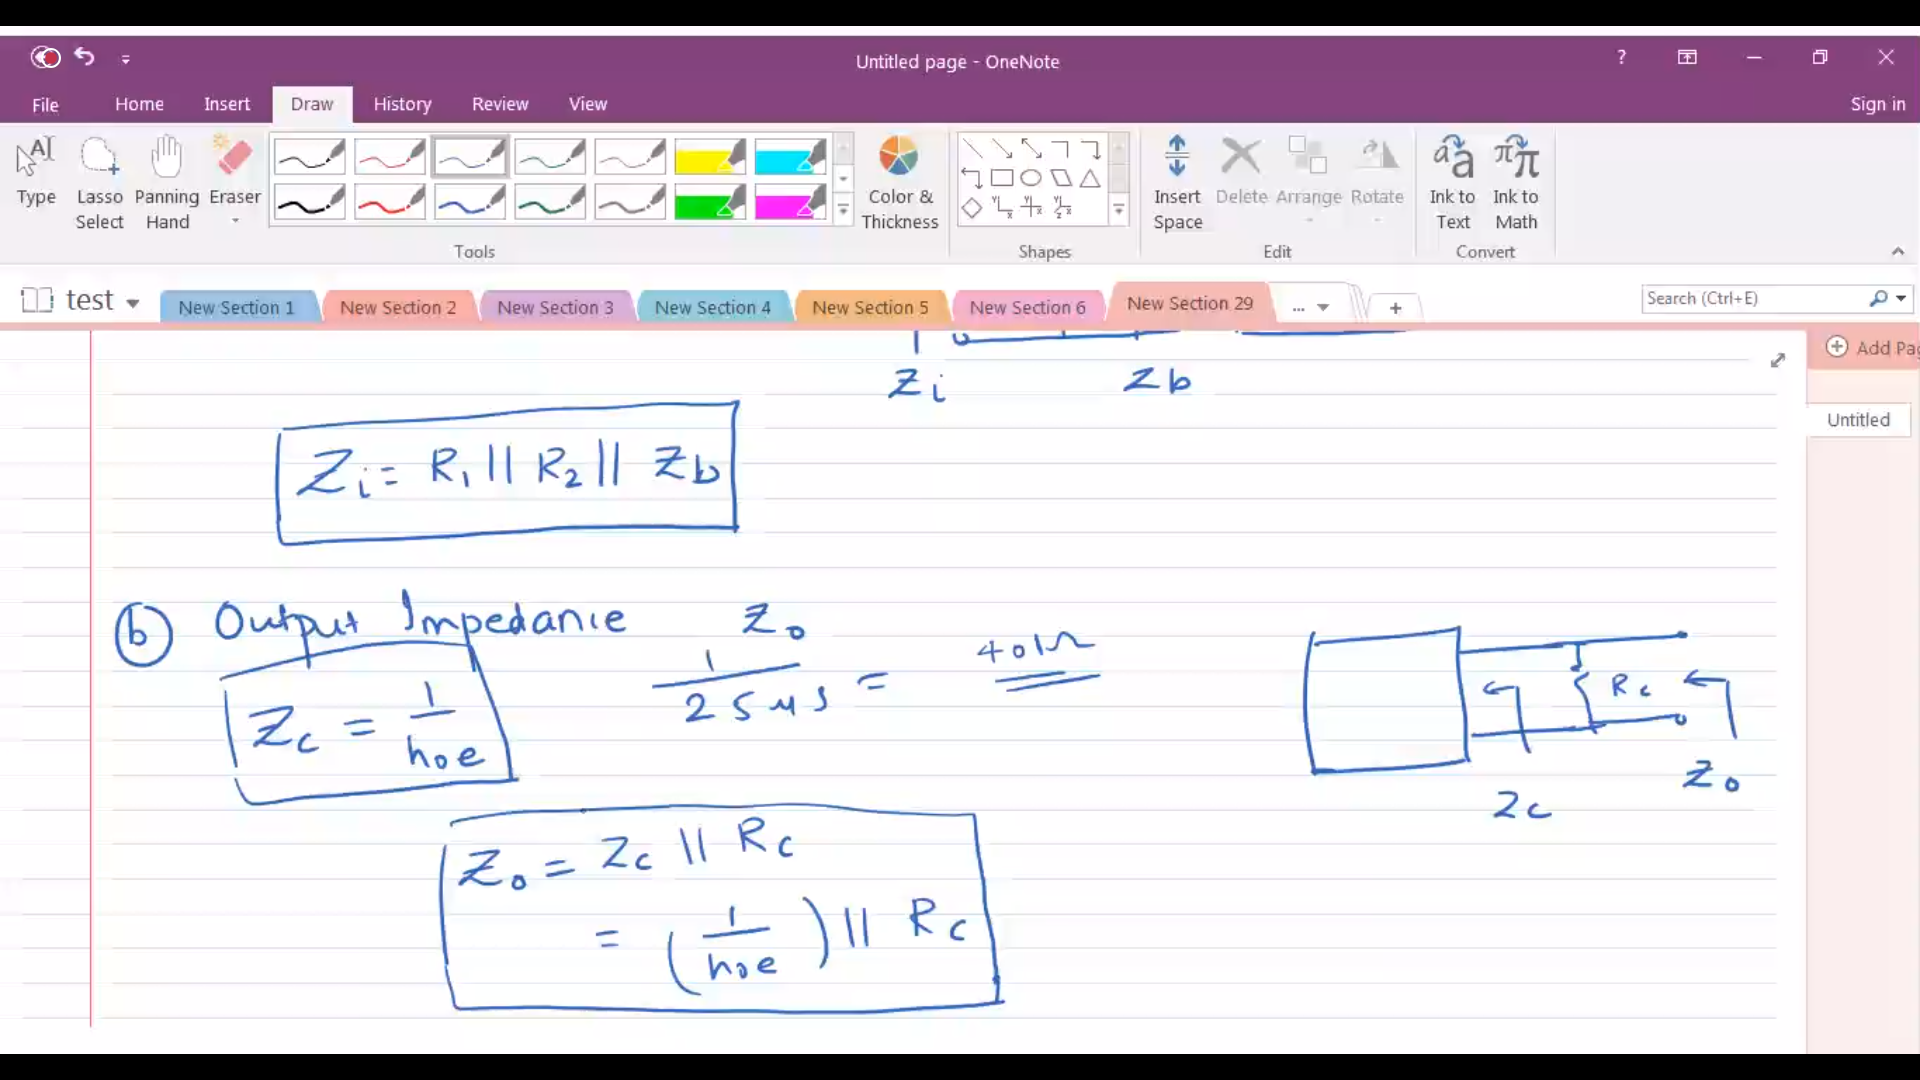 Untitled page - OneNote
?
File Home Insert Draw History Review View
Sign in
Type
Lasso Select
Panning Hand
Eraser
Color & Thickness
Insert Space
Delete
Arrange
Rotate
Ink to Text
Ink to Math
Tools
Shapes
Edit
Convert
test
New Section 1
New Section 2
New Section 3
New Section 4
New Section 5
New Section 6
New Section 29
...
+
Search (Ctrl+E)
Add Pag
Untitled
Zi Zb
Zi = R1 || R2 || Zb
b Output Impedance Zo
Zc = 1/hoe
1/25 μs = 40kΩ
Rc
Zc
Zo
Zo = Zc || Rc
= (1/hoe) || Rc